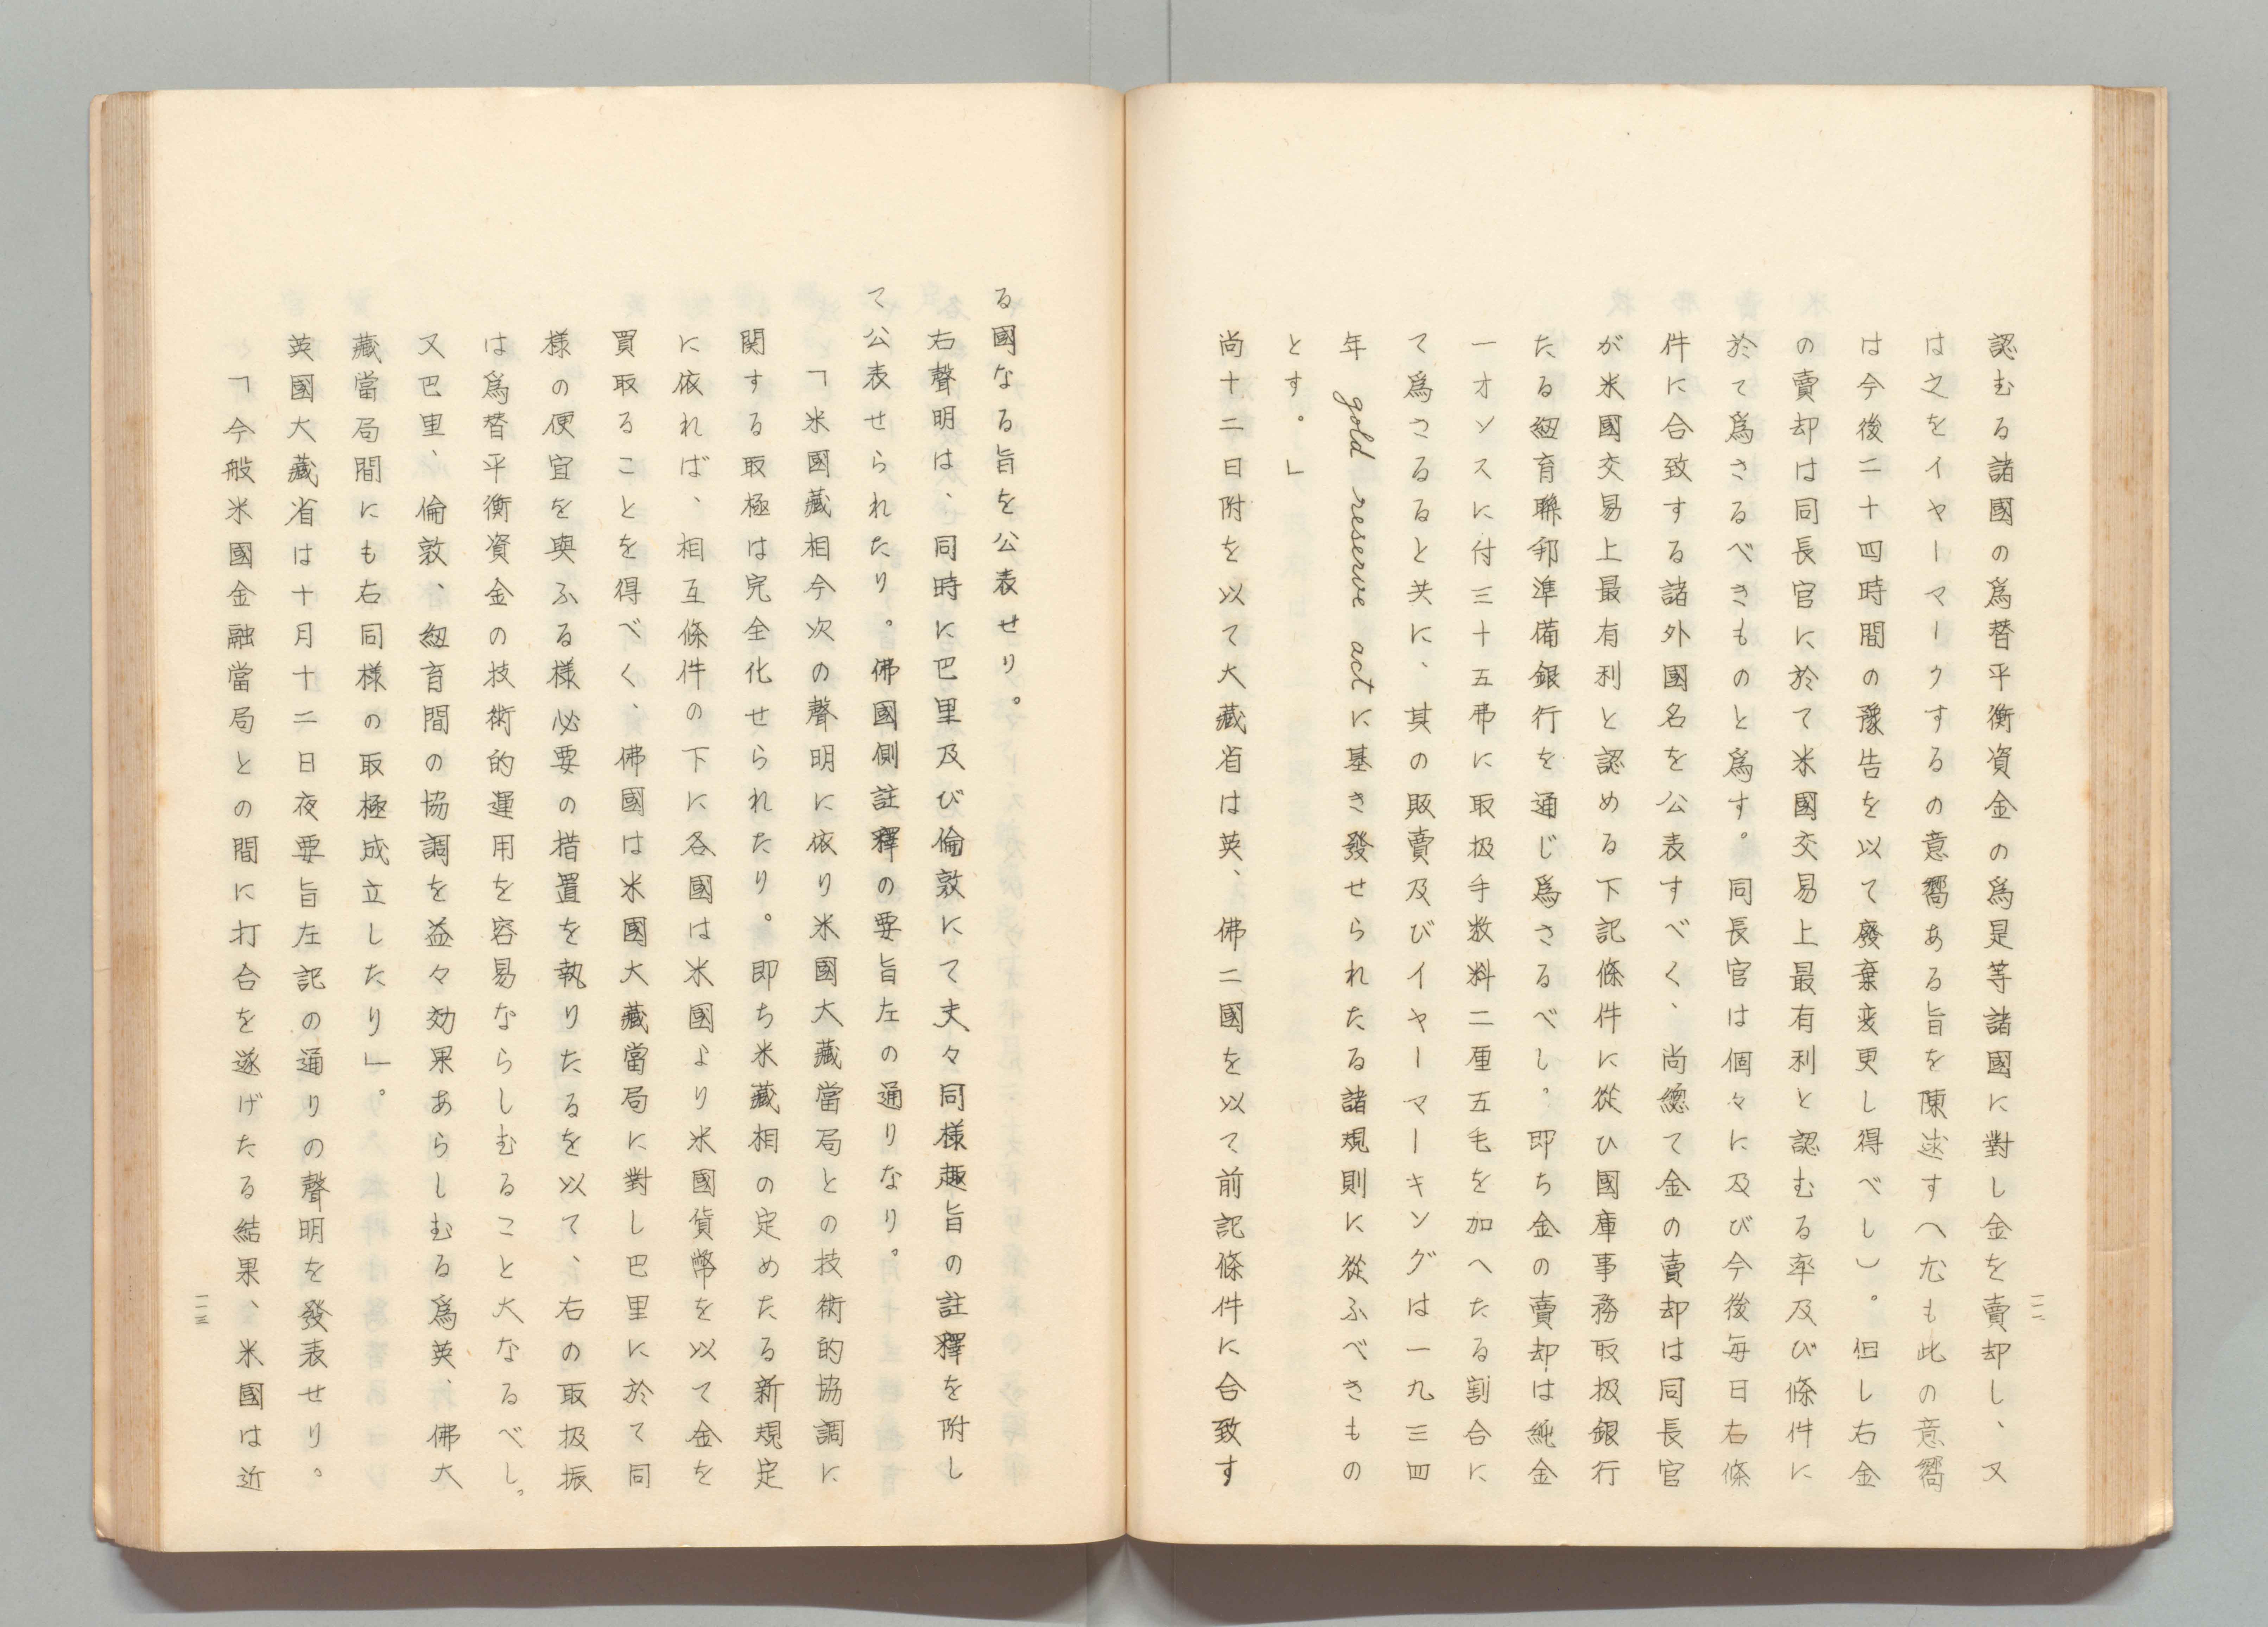 認むる諸國の爲替平衡資金の爲是等諸國に對し金を賣却し、又
は之をイヤーマークするの意嚮ある旨を陳述すへ尢も此の意嚮
は今後二十四時間の豫告を以て廢棄変更し得べし)。但し右金
の賣却は同長官に於て米國交易上最有利と認むる率及び條件に
於て爲さるべきものと爲す。同長官は個々に及び今後毎日右條
件に合致する諸外國名を公表すべく、尚總て金の賣却は同長官
が米國交易上最有利と認める下記條件に從ひ國庫事務取扱銀行
たる紐育聯邦準備銀行を通じ爲さるべし。即ち金の賣却は純金
一オンスに付三十五弗に取扱手数料二厘五毛を加へたる割合に
て爲さるると共に、其の販賣及びイヤーマーキングは一九三四
年 gold reserve act に基き發せられたる諸規則に從ふべきもの
とす。」
尚十二日附を以て大藏省は英、佛二國を以て前記條件に合致す
一一二
る國なる旨を公表せり。
右聲明は、同時に巴里及び倫敦にて夫々同様趣旨の註釋を附し
て公表せられたり。佛國側註釋の要旨左の通りなり。
「米國藏相今次の聲明に依り米國大藏當局との技術的協調に
関する取極は完全化せられたり。即ち米藏相の定めたる新規定
に依れば、相互條件の下に各國は米國より米國貨幣を以て金を
買取ることを得べく、佛國は米國大藏當局に對し巴里に於て同
様の便宜を與ふる様必要の措置を執りたるを以て、右の取扱振
は爲替平衡資金の技術的運用を容易ならしむること大なるべし。
又巴里、倫敦、紐育間の協調を益々効果あらしむる爲英、佛大
藏當局間にも右同様の取極成立したり」。
英國大藏省は十月十二日夜要旨左記の通りの聲明を發表せり。
「今般米國金融當局との間に打合を遂げたる結果、米國は近
一一三